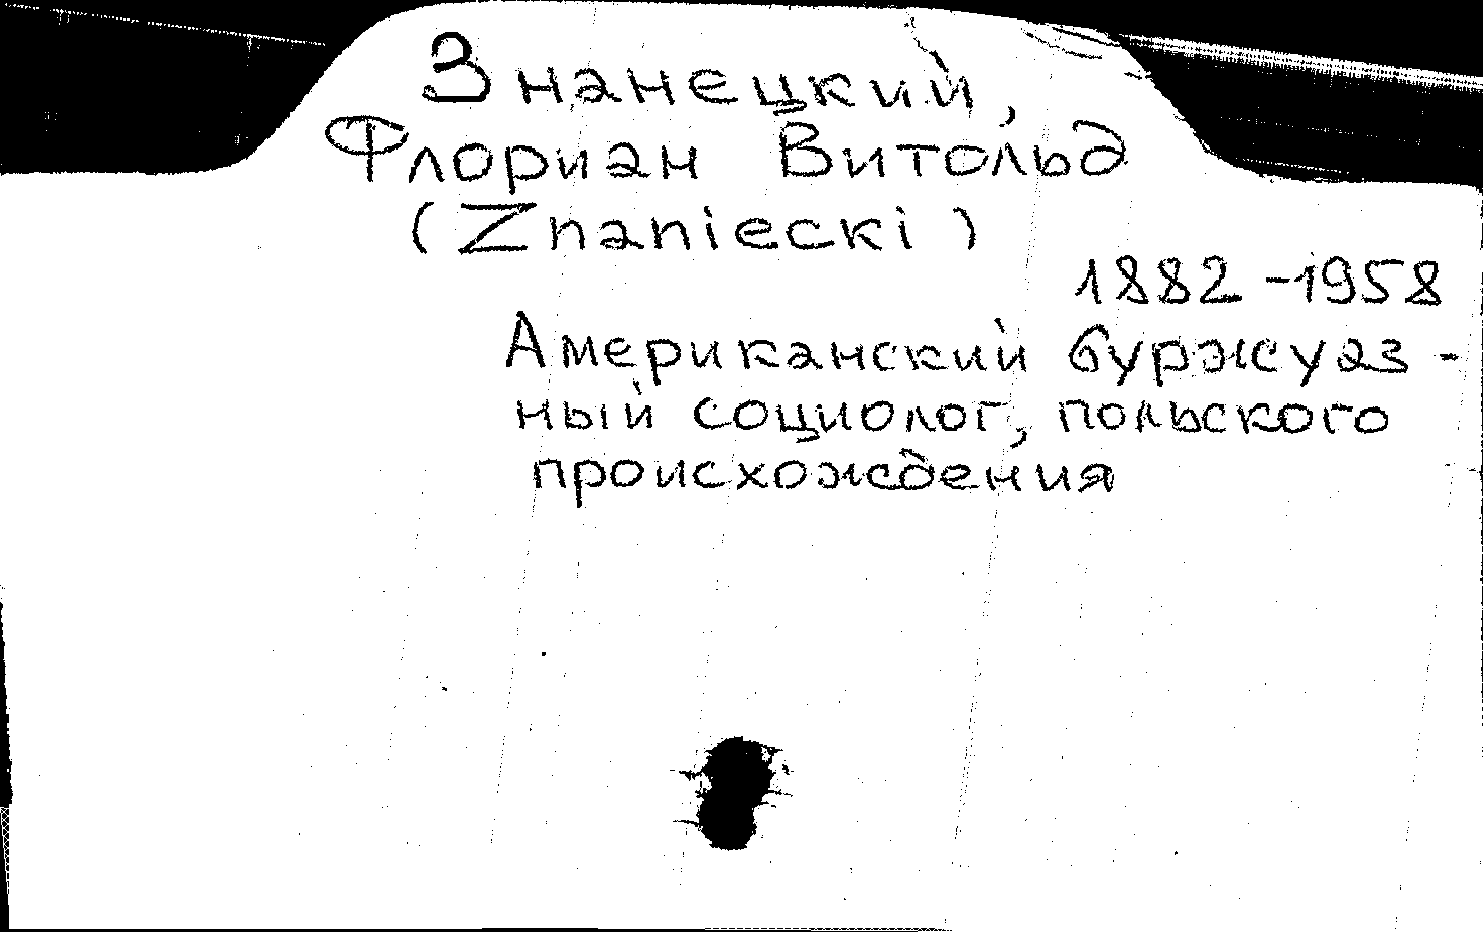 Знанецкий,
Флориан Витольд
(Znaniecki)
1882-1958
Американский буржуаз-
ный социолог, польского
происхождения